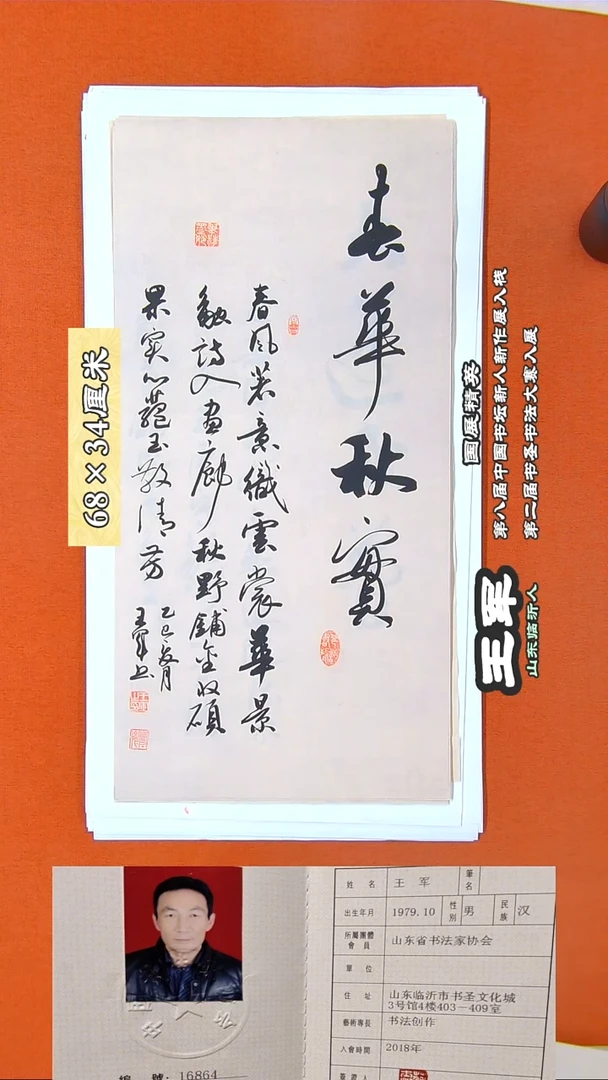 春華秋實
春风若意織雲裳華景
融詩入畫廊秋野鋪金收碩
果实心蘊玉散清芳
乙巳
王军书
68×34厘米
国展精英
第八届中国书坛新人新作展入展
第二届书圣书法大赛入展
王军
山东临沂人
姓 名 王 军 筆名
出生年月 1979.10 性別 男 民族 汉
所屬團體會員 山东省书法家协会
單 位
住 址 山东临沂市书圣文化城3号馆4楼403-409室
藝術專長 书法创作
入會時間 2018年
簽證人
編 號: 16864